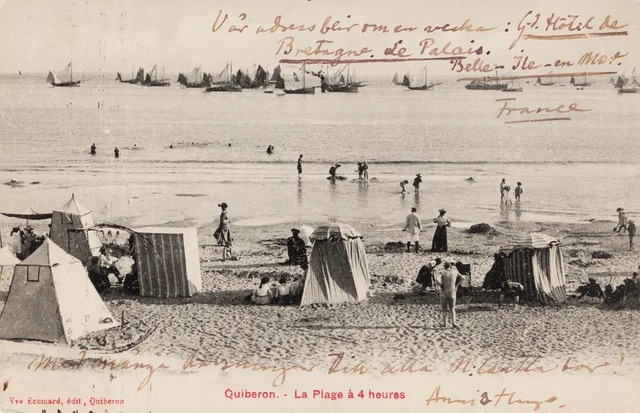 Vår adress blir om en vecka: Gd. Hôtel de
Bretagne. Le Palais.
Belle-Ile-en Mer
France
Med många hälsningar till alla
Quiberon. - La Plage à 4 heures
Vve Ecomard, édit, Quiberon